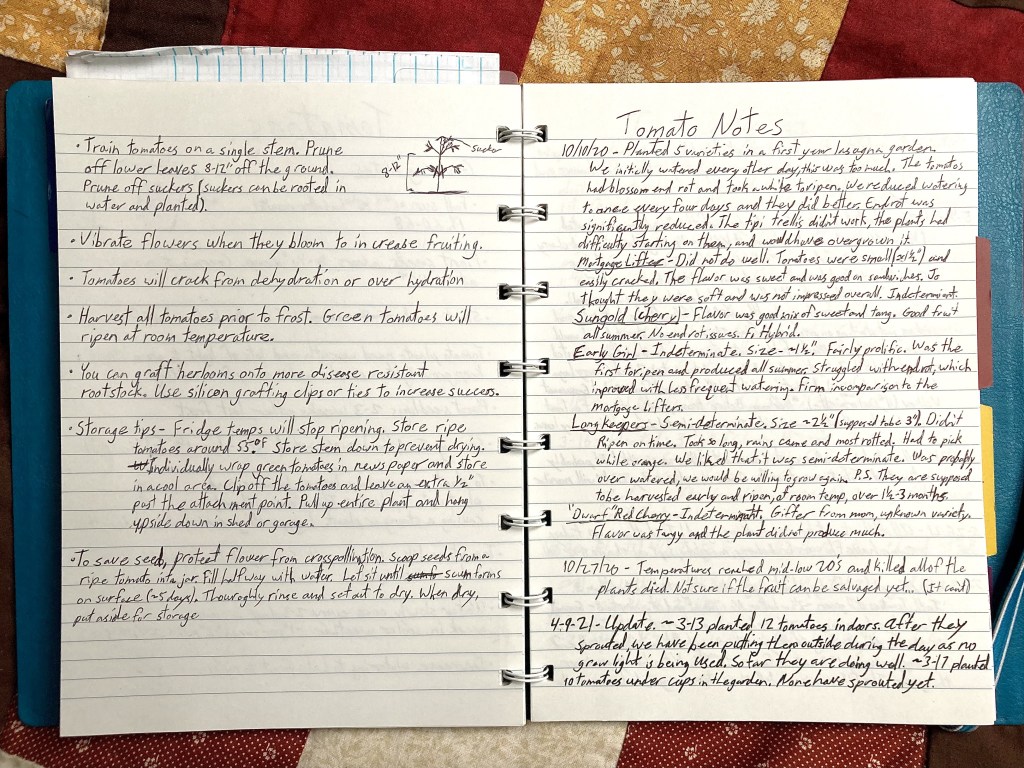 • Train tomatoes on a single stem. Prune
off lower leaves 8-12" off the ground.
Prune off suckers (suckers can be rooted in
water and planted).
8-12"
sucker
• Vibrate flowers when they bloom to increase fruiting.
• Tomatoes will crack from dehydration or over hydration
• Harvest all tomatoes prior to frost. Green tomatoes will
ripen at room temperature.
• You can graft herlooms onto more disease resistant
rootstock. Use silicon grafting clips or ties to increase success.
• Storage tips - Fridge temps will stop ripening. Store ripe
tomatoes around 55°F. Store stem down to prevent drying.
Individually wrap green tomatoes in news paper and store
in a cool area. Clip off the tomatoes and leave an extra ½"
past the attachment point. Pull up entire plant and hang
upside down in shed or garage.
• To save seed, protect flower from crosspollination. Scoop seeds from a
ripe tomato into jar. Fill halfway with water. Let sit until scum forms
on surface (~5 days). Thouroghly rinse and set out to dry. When dry,
put aside for storage
Tomato Notes
10/10/20 - Planted 5 varieties in a first year lasagna garden.
We initially watered every other day, this was too much. The tomatos
had blossom end rot and took a while to ripen. We reduced watering
to once every four days and they did better. End rot was
significently reduced. The tipi trellis didn't work, the plants had
difficulty starting on them, and would have overgrown it.
Mortgage Lifter - Did not do well. Tomatoes were small (≈1½") and
easily cracked. The flavor was sweet and was good on sandwiches. Jo
thought they were soft and was not impressed overall. Indeterminant.
Sungold (cherry) - Flavor was good mix of sweet and tang. Good fruit
all summer. No end rot issues. F₁ Hybrid.
Early Girl - Indeterminate. Size ~1½". Fairly prolific. Was the
first to ripen and produced all summer. Struggled with end rot, which
improved with less frequent watering. Firm in comparison to the
mortgage lifters.
Longkeepers - Semi-determinate. Size ~2½" (supposed to be 3"). Didn't
Ripen on time. Took so long, rains came and most rotted. Had to pick
while orange. We liked that it was semi-determinate. Was probably
over watered, we would be willing to grow again. P.S. They are supposed
to be harvested early and ripen, at room temp, over 1½-3 months.
"Dwarf" Red Cherry - Indeterminant. Gifter from mom, unknown variety.
Flavor was tangy and the plant did not produce much.
10/27/20 - Temperatures reached mid-low 20's and killed all of the
plants died. Not sure if the fruit can be salvaged yet... (It can't)
4-9-21 - Update. ~ 3-13 planted 12 tomatoes indoors. After they
sprouted, we have been putting them outside during the day as no
grow light is being used. So far they are doing well. ~3-17 planted
10 tomatoes under cups in the garden. None have sprouted yet.